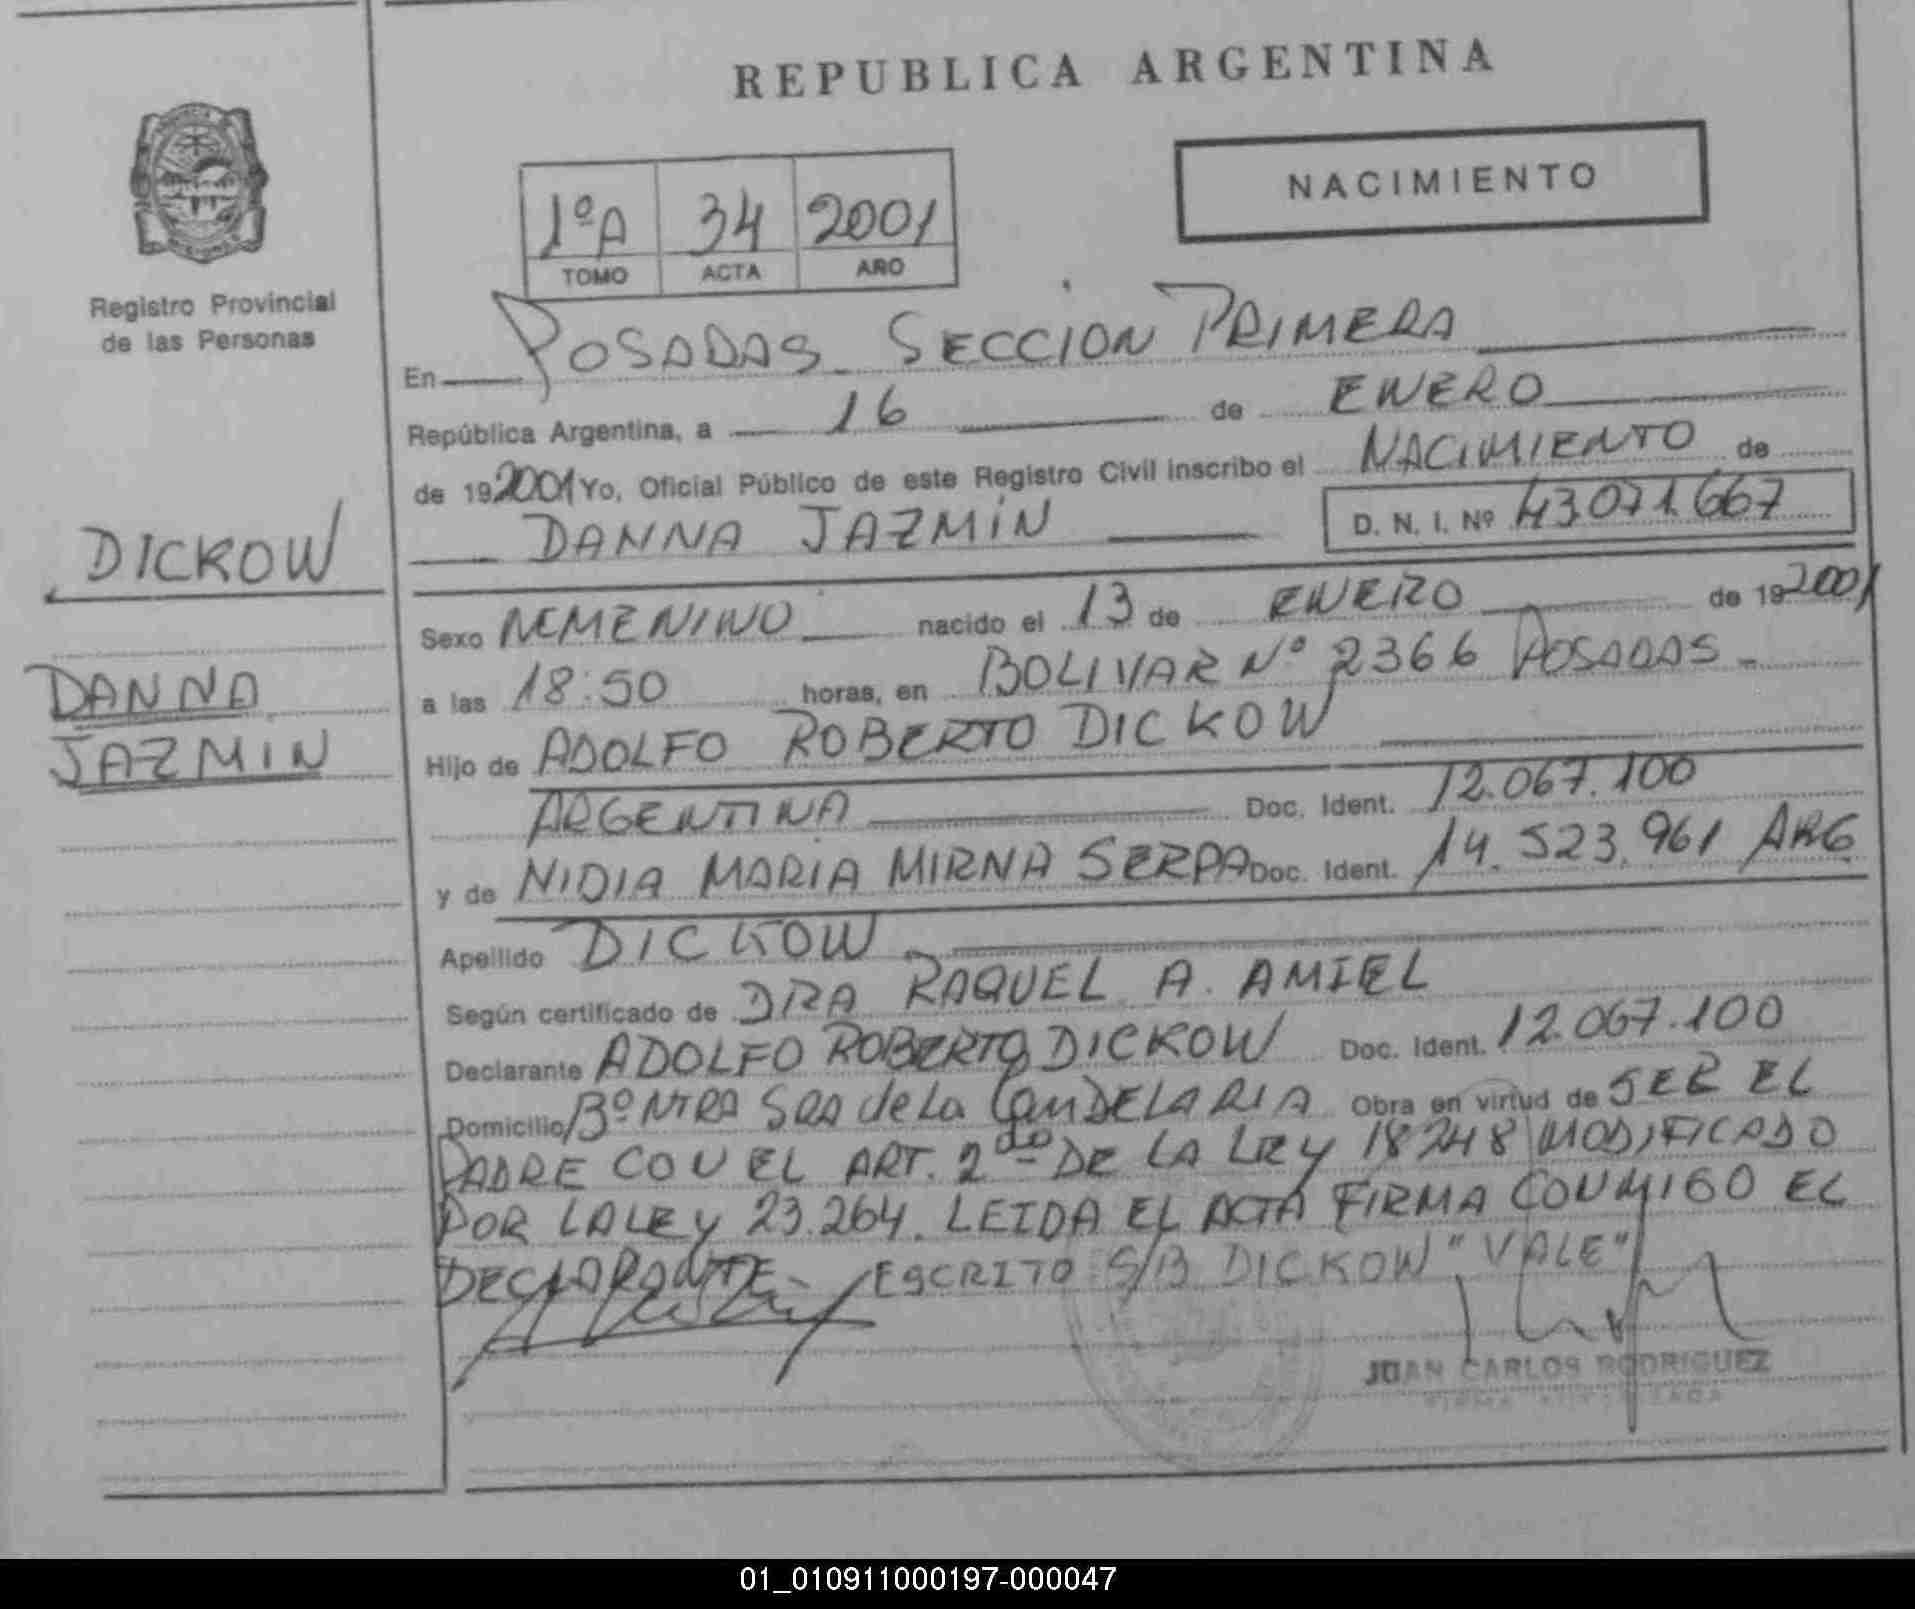 REPUBLICA ARGENTINA
NACIMIENTO
1ºA 34 2001
TOMO ACTA AÑO
Registro Provincial
de las Personas
DICKOW
DANNA
JAZMIN
En POSADAS SECCION PRIMERA
República Argentina, a 16 de ENERO
de 192001 Yo, Oficial Público de este Registro Civil inscribo el NACIMIENTO de
DANNA JAZMÍN D. N. I. Nº 43071.667
Sexo nacido el 13 de ENERO de 192001
a las 18:50 horas, en BOLIVAR Nº 2366 POSADAS
Hijo de ADOLFO ROBERTO DICKOW
ARGENTINA Doc. Ident. 12.067.100
y de NIDIA MARIA MIRNA SERPA Doc. Ident. 14.523.961 ARG
Apellido DICKOW
Según certificado de DRA RAQUEL A. AMIEL
Declarante ADOLFO ROBERTO DICKOW Doc. Ident. 12.067.100
Domicilio Bº NTRA SRA de La CanDELARIA Obra en virtud de SER EL
PADRE CON EL ART. 2do DE LA LEY 18248 MODIFICADO
POR LA LEY 23.264. LEIDA EL ACTA FIRMA CONMIGO EL
DECLARANTE. ESCRITO S/B DICKOW "VALE"
JUAN CARLOS RODRIGUEZ
01_010911000197-000047